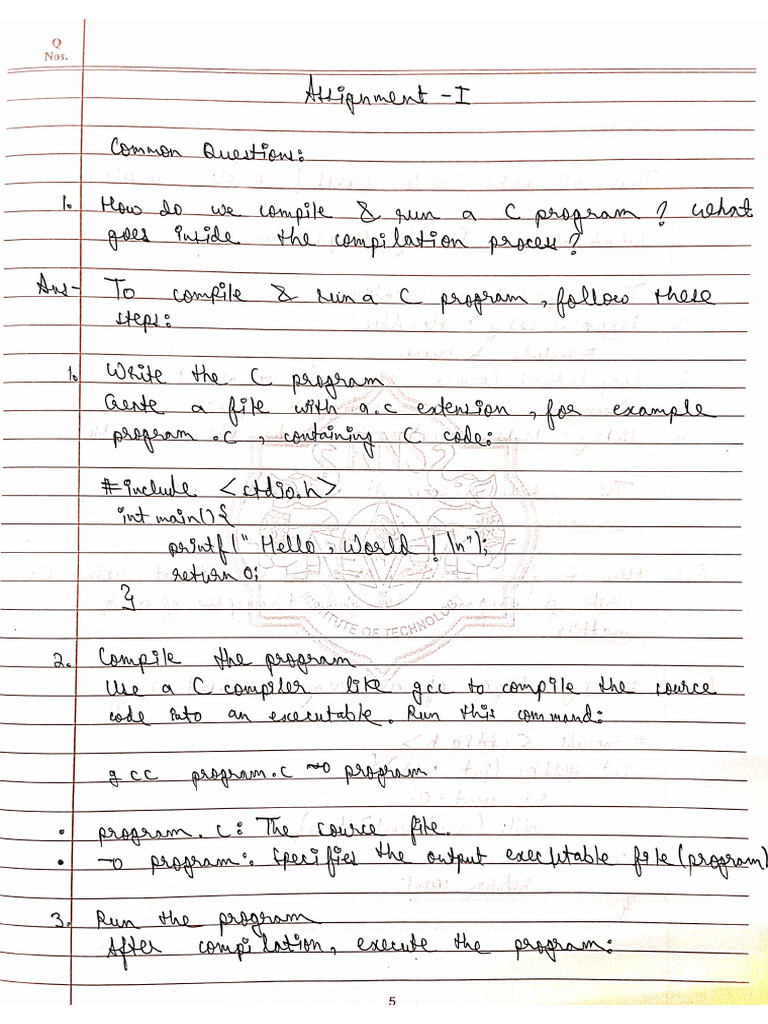 Q
Nos.
Assignment - I
Common Questions:
1. How do we compile & run a C program? What
goes inside the compilation process?
Ans- To compile & run a C program, follow these
steps:
1. Write the C program
Create a file with a .c extension, for example
program.c, containing C code:
#include <stdio.h>
int main(){
printf("Hello, World!\n");
return 0;
}
INSTITUTE OF TECHNOLOGY
2. Compile the program
Use a C compiler like gcc to compile the source
code into an executable. Run this command:
gcc program.c -o program
• program.c: The source file.
• -o program: Specifies the output executable file (program)
3. Run the program
After compilation, execute the program:
5